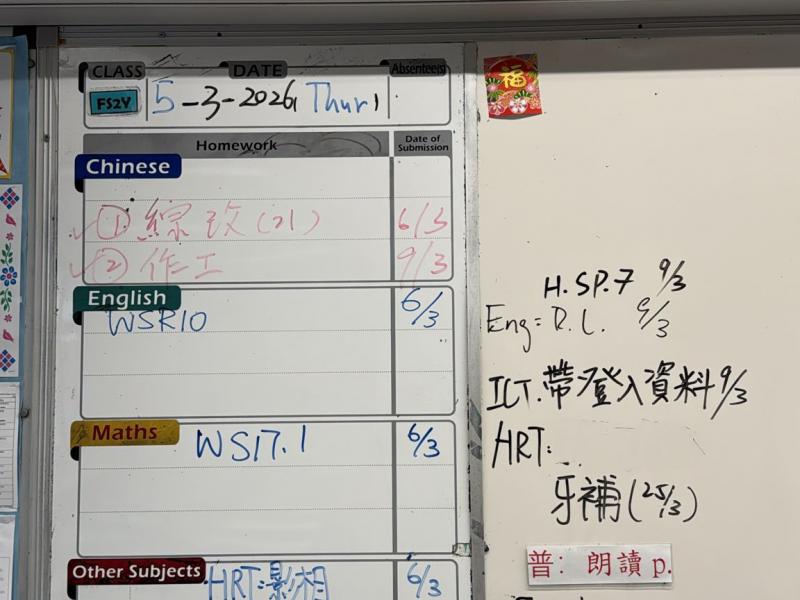 CLASS DATE Absentee(s)
FS2Y 5-3-2026, Thur,
Homework Date of Submission
Chinese
① 綜攷(21) 6/3
② 作工 9/3
English 6/3
WSR10
Maths
WS17.1 6/3
Other Subjects
HRT:影相 6/3
福
H.SP.7 9/3
Eng= R.L. 9/3
ICT.帶登入資料 9/3
HRT:
牙補(25/3)
普: 朗讀 p.